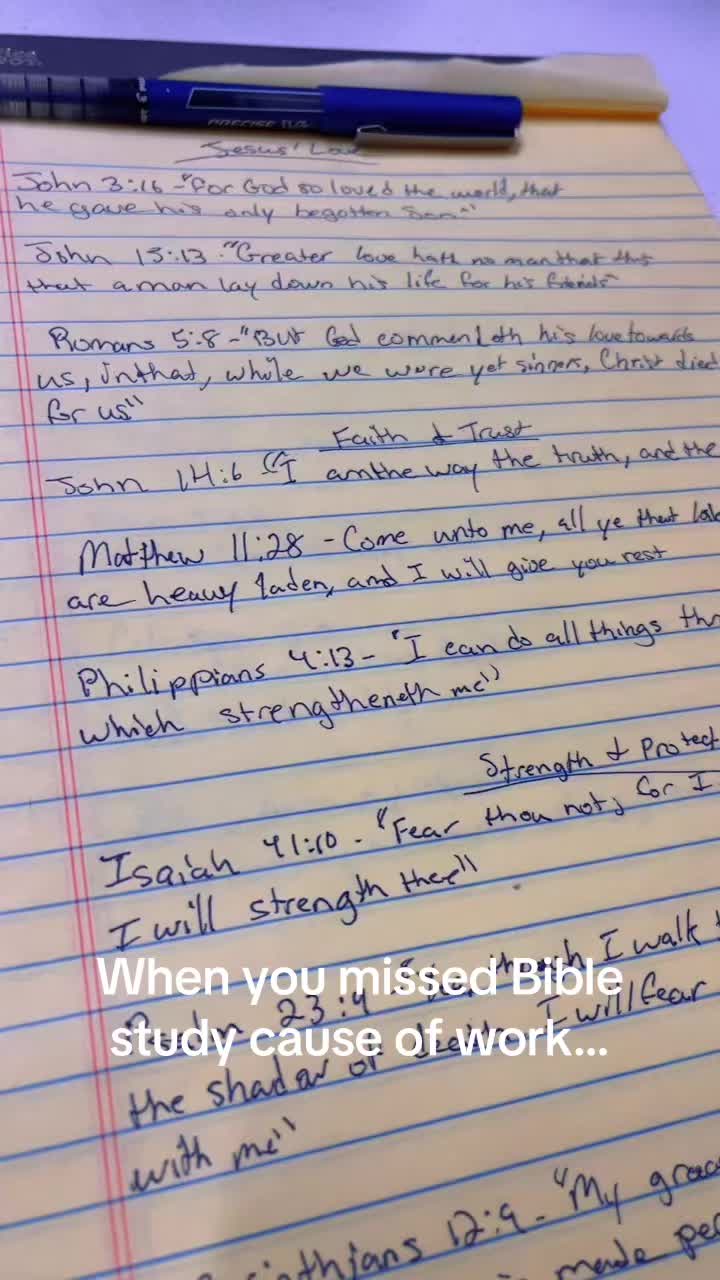 PRECISE
Jesus' Love
John 3:16 - "For God so loved the world, that
he gave his only begotten Son"
John 13:13 - "Greater love hath no man that this
that a man lay down his life for his friends"
Romans 5:8 - "But God commendeth his love towards
us, in that, while we were yet sinners, Christ died
for us"
Faith & Trust
John 14:6 "I am the way the truth, and the
Matthew 11:28 - Come unto me, all ye that
are heavy laden, and I will give you rest
Philippians 4:13 - "I can do all things
which strengtheneth me"
Strength & Protect
Isaiah 41:10 - "Fear thou not, for I
I will strength thee"
23:4 I walk
When you missed Bible
I will fear
study cause of work...
the shadow of
with me"
12:9 - "My
made